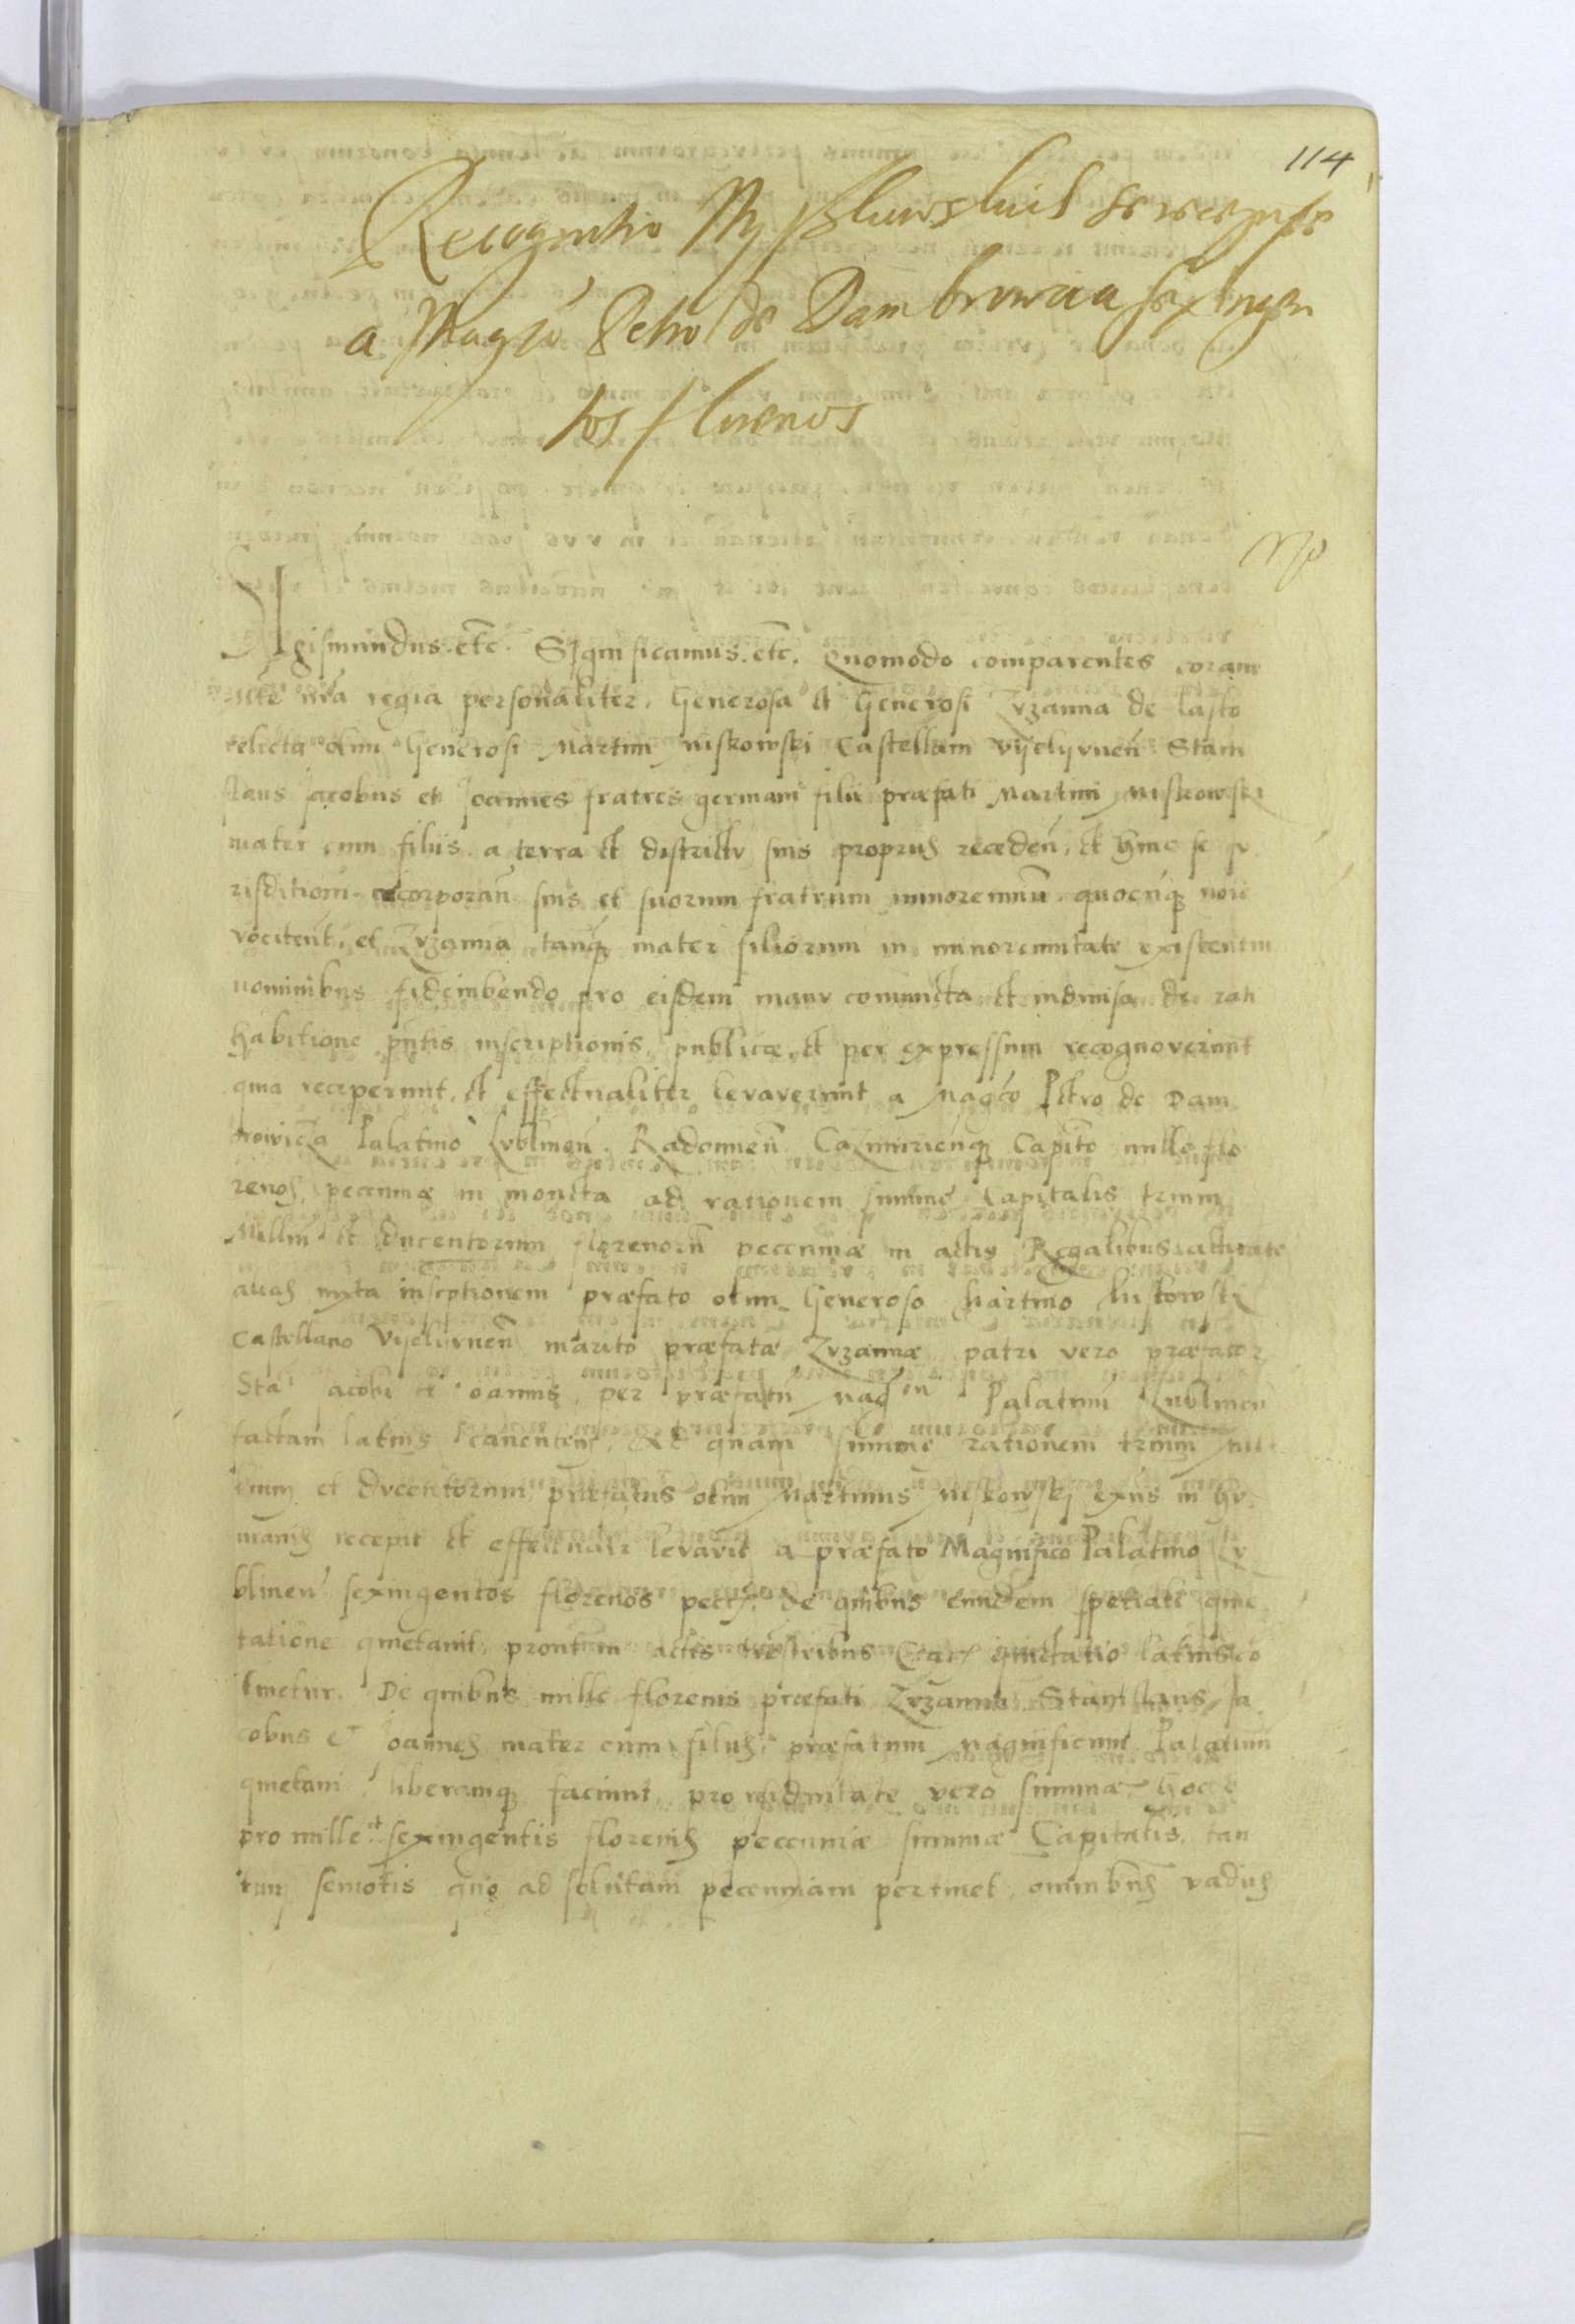 114
Recognitio Myskowskiis de receptis
a Magco Petro de Dambrowicza sexingen
tos florenos
Igismundus. etc. Significamus. etc. Quomodo comparentes coram
Mte nra regia personaliter, Generosa et Generosi Zvzanna de lasko
relicta olim Generosi Martini Miskowski Castellani Vyelyvnen Stani
slaus Jacobus et Joannes fratres germani filii præfati Martini Miskowski
mater cum filiis a terra et districtu suis propriis receden, et huic se iu
risditioni incorporan suis et suorum fratrum minorennũ quocũq noĩe
vocitent, et Zvzanna tanq mater filiorum in minorennitate existentiũ
nominibus fideiubendo pro eisdem manu coniuncta et indivisa de rati
habitione pñtis inscriptionis, publice, et per expressum recognoverunt
quia receperunt, et effectualiter levaverunt a Magco Petro de Dam
browicza Palatino Lvblineñ Radomieñ Cazimirieñq Capito mille flo
renos pecuniæ in moneta ad rationem summe Capitalis trium
Milliũ et ducentorum florenorũ pecuniæ in actis Regalibus
iuxta inscptionem præfato olim Generoso Martino Miskowski
Castellano Vyelivneñ marito præfatæ Zvzannæ patri vero præfator
Stã Jacobi et Joannis, per præfatũ Mag cũ Palatinũ Lublineñ
factam latius canentem, Ad quam summe rationem trium Mil
lium et dvcentorum præfatus olim Martinus Miskowskj exns in hu
manis recepit et effectualr levavit a præfato Magnifico Palatino Lv
blineñ sexingentos florenos pecũ, de quibus eundem speciali quie
tatione quietavit, prout in actis trestribus quietatio latius co
tinetur. De quibus mille florenis præfati Zvzanna Stanislaus, Ja
cobus et Joannes mater cum filiis, præfatum Magnificum Palatinũ
quietant liberumq faciunt, pro vero summæ hoc e
pro mille et sexingentis florenis pecuniæ summæ Capitalis, tan
tum semotis quo ad solutam pecuniam pertinet, omnibus vadiis